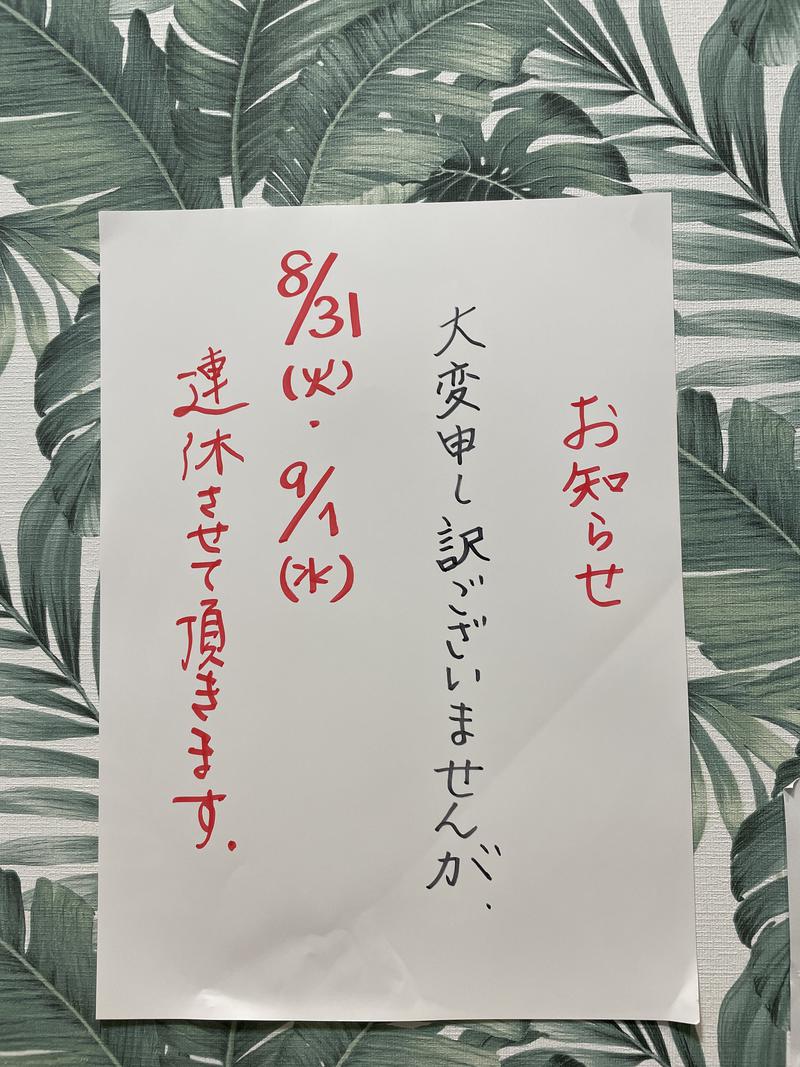 お知らせ
大変申し訳ございませんが、
8/31(火)・9/1(水)
連休させて頂きます.